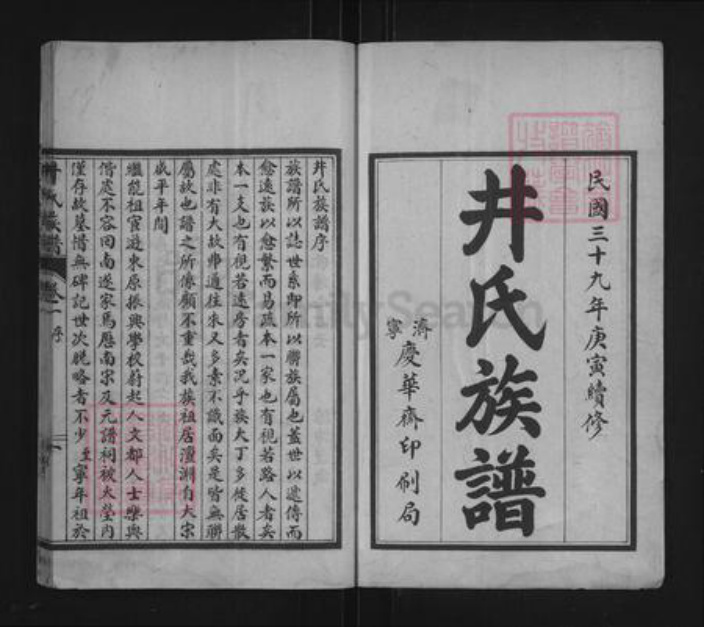 民國三十九年庚寅續修
井氏族譜
濟寧慶華齋印刷局
井氏族譜序
族譜所以誌世系即所以聯族屬也蓋世以遞傳而
愈遠族以愈繁而易疏本一家也有視若路人者矣
本一支也有視若遠房者矣况乎族大丁多徙居散
處非有大故弗通往來又多素不識面矣是皆無聯
屬故也譜之所係顧不重哉我族祖居澶淵自大宋
咸平年間
繼能祖宦遊東原振興學校蔚起人文都人士樂與
偕處不容回南遂家焉歷南宋及元譜祠被火塋內
僅存故墓惜無碑記世次脫略者不少 至寧年祖於
井氏族譜 卷一 序
FamilySearch